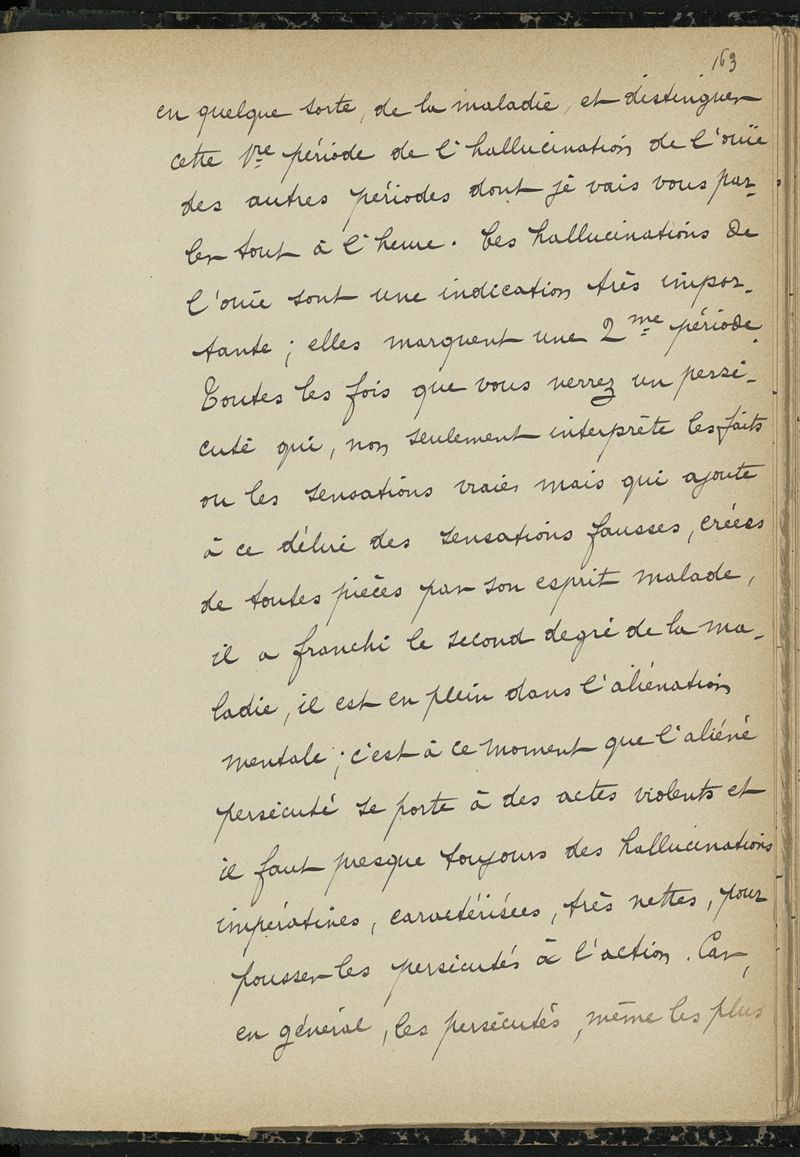 163
en quelque sorte, de la maladie, et distinguer
cette 1re période de l'hallucination de l'ouïe
des autres périodes dont je vais vous par-
ler tout à l'heure. Ces hallucinations de
l'ouïe sont une indication très impor-
tante ; elles marquent une 2me période.
Toutes les fois que vous verrez un persé-
cuté qui, non seulement interprète les faits
ou les sensations vraies mais qui ajoute
à ce délire des sensations fausses, créées
de toutes pièces par son esprit malade,
il a franchi le second degré de la ma-
ladie, il est en plein dans l'aliénation
mentale ; c'est à ce moment que l'aliéné
persécuté se porte à des actes violents et
il faut presque toujours des hallucinations
impératives, caractérisées, très nettes, pour
pousser les persécutés à l'action. Car,
en général, les persécutés, même les plus